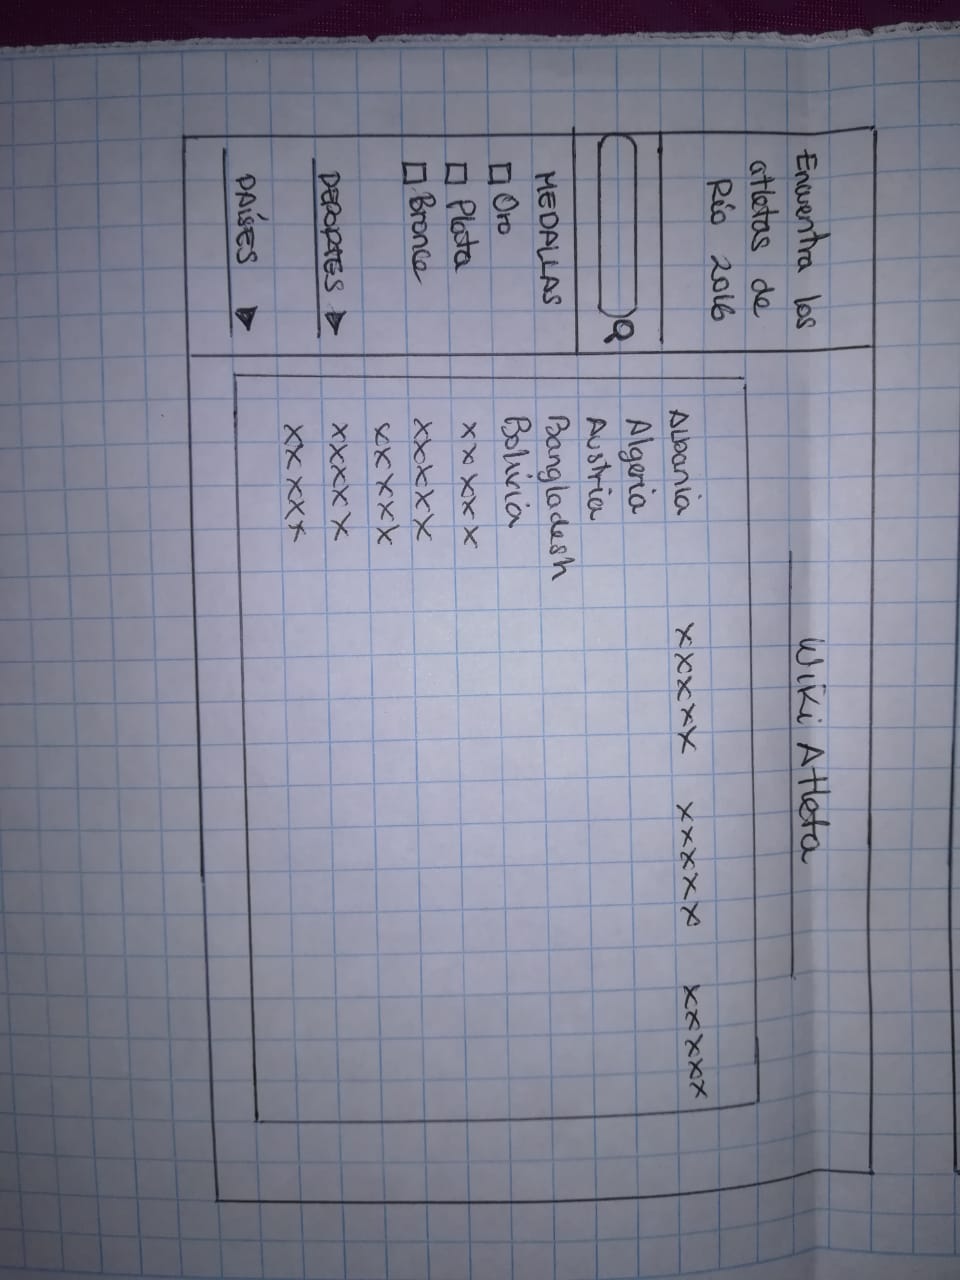 Encuentra los
atletas de
Río 2016
MEDALLAS
Oro
Plata
Bronce
DEPORTES
PAÍSES
Wiki Atleta
Albania xxxxx xxxxx xxxxx
Algeria
Austria
Bangladesh
Bolivia
xxxxx
xxxxx
xxxxx
xxxxx
xxxxx